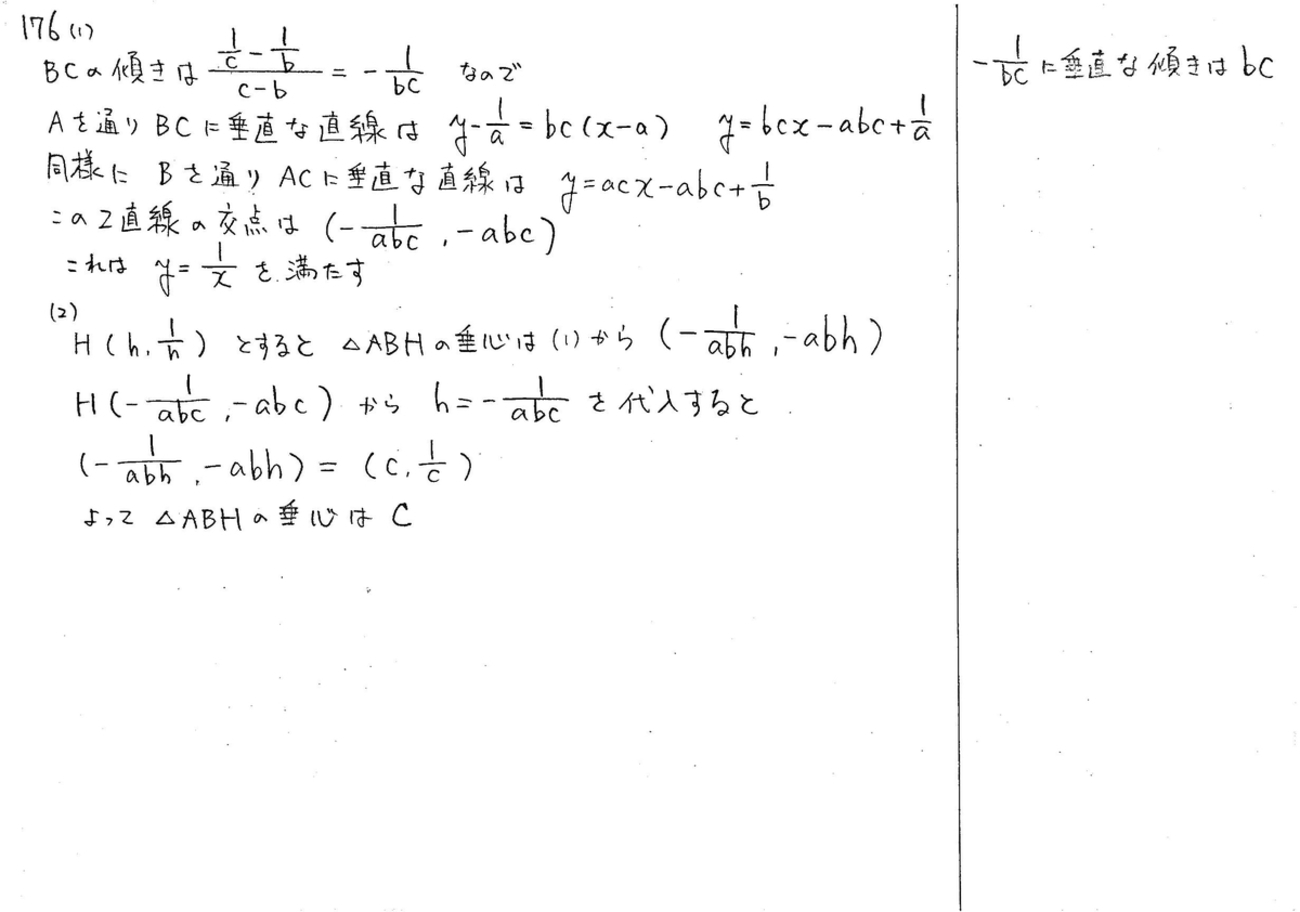 176 (1)
BCの傾きは (1/c − 1/b)/(c−b) = −1/bc なので
Aを通りBCに垂直な直線は y−1/a = bc(x−a) y=bcx−abc+1/a
同様に Bを通りACに垂直な直線は y=acx−abc+1/b
この2直線の交点は (−1/abc, −abc)
これは y=1/x を満たす
(2)
H(h, 1/h) とすると △ABHの垂心は(1)から (−1/abh, −abh)
H(−1/abc, −abc) から h=−1/abc を代入すると
(−1/abh, −abh) = (c, 1/c)
よって △ABHの垂心は C
−1/bc に垂直な傾きは bc